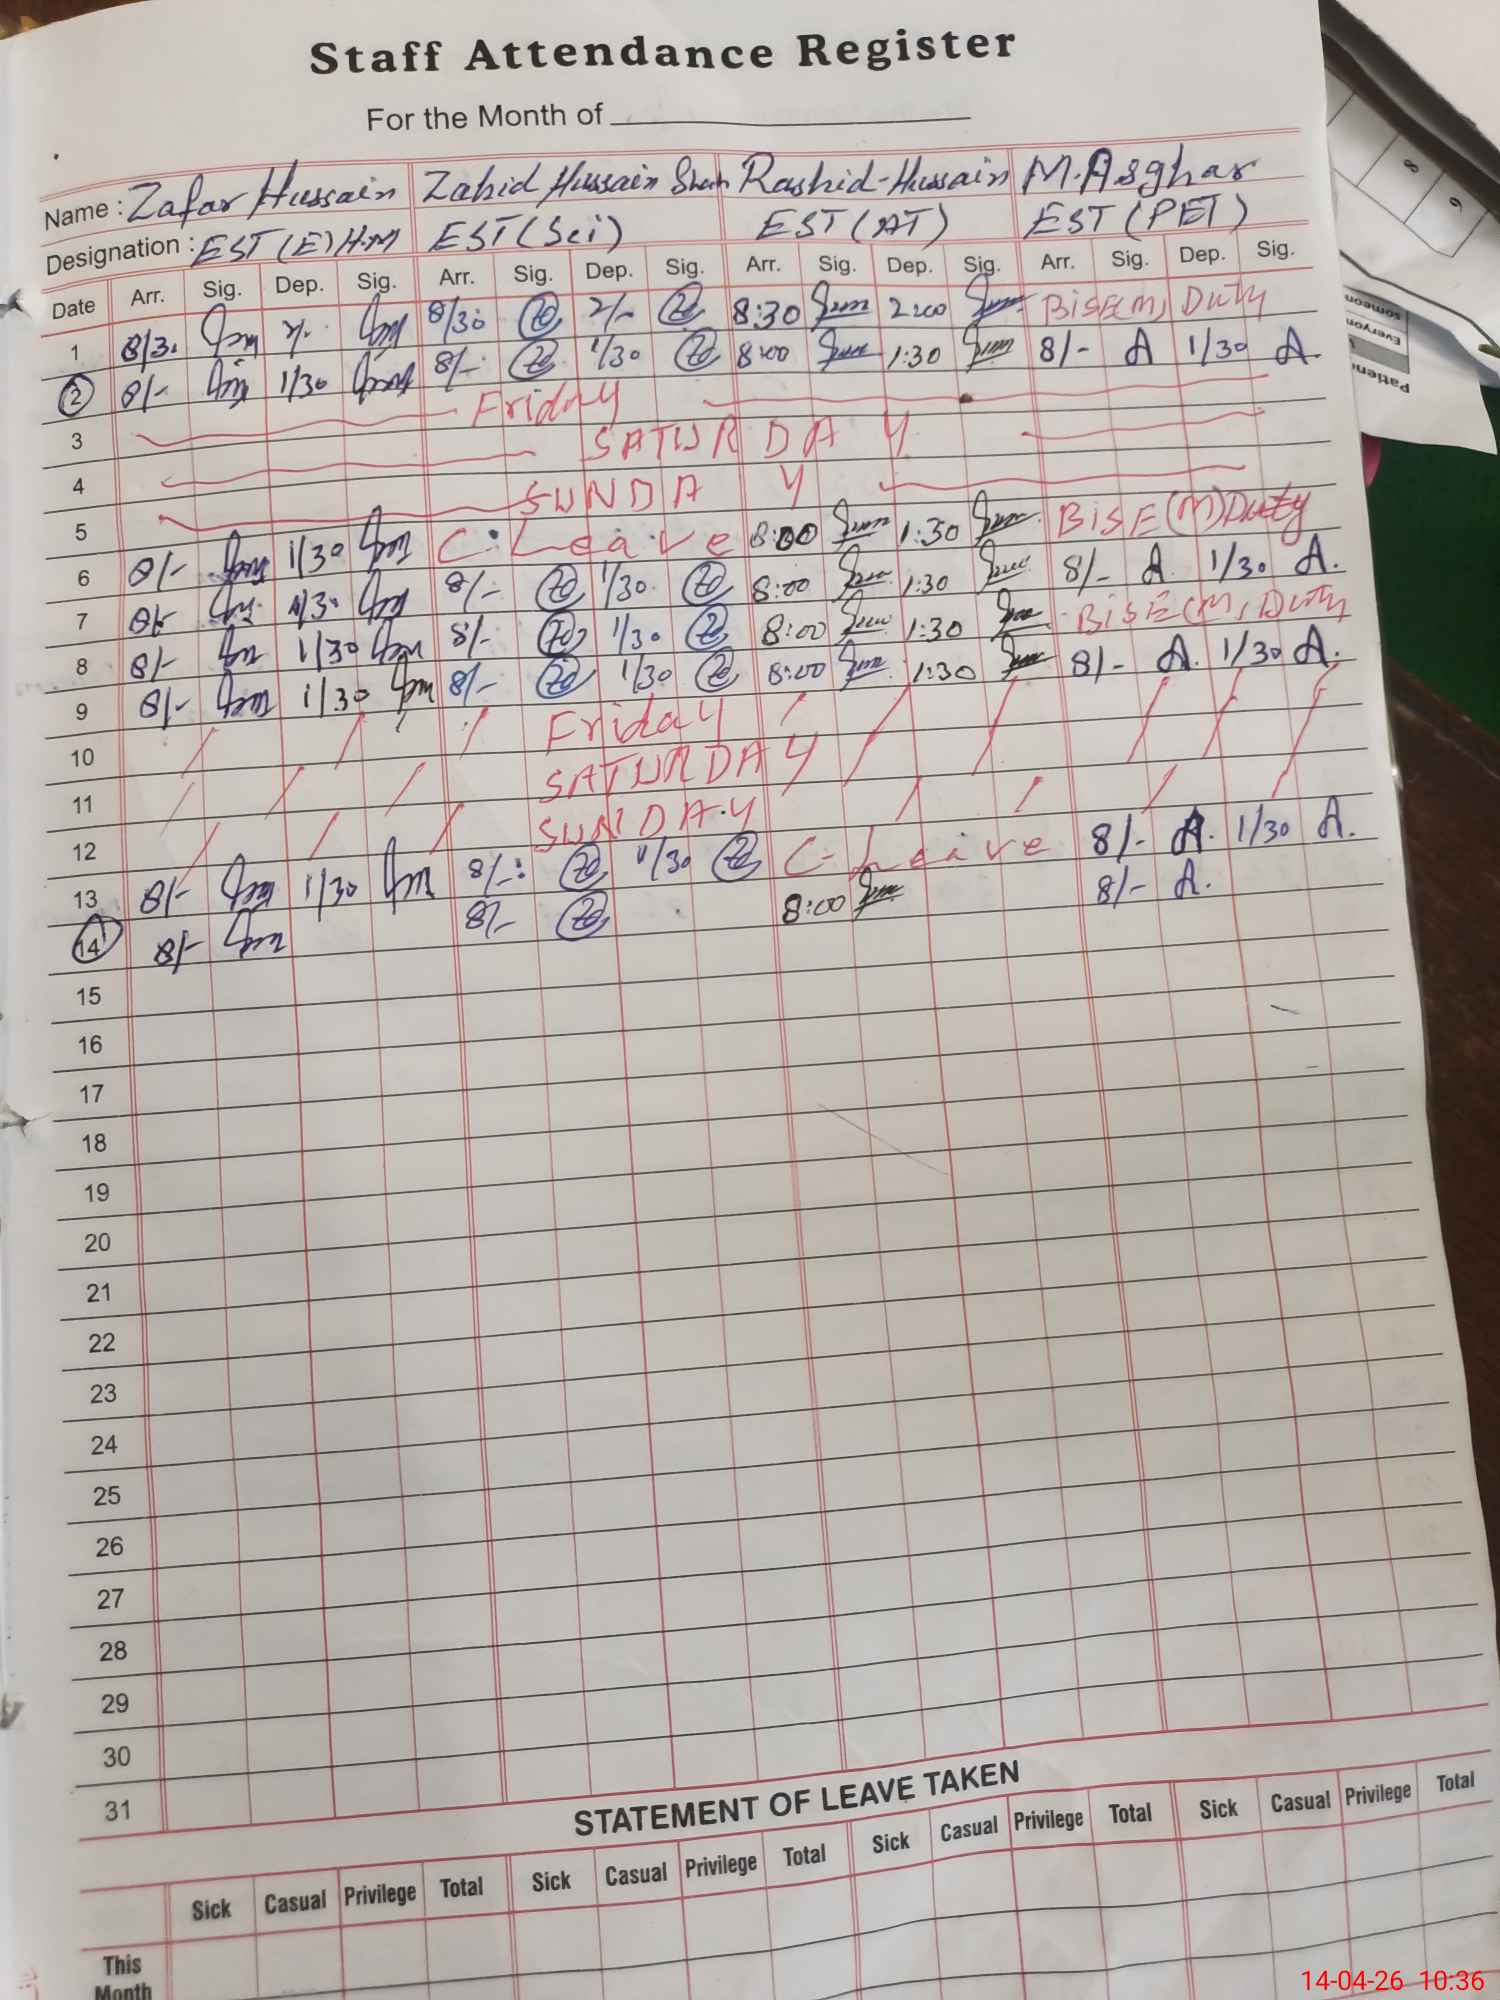 Staff Attendance Register
For the Month of
Name : Zafar Hussain Zahid Hussain Shah Rashid-Hussain M.Asghar
Designation : EST (E) H.M EST (Sci) EST (AT) EST (PET)
Date Arr. Sig. Dep. Sig. Arr. Sig. Dep. Sig. Arr. Sig. Dep. Sig. Arr. Sig. Dep. Sig.
1 8/30 2/- 8/30 2/- 8:30 2:00 BISE(M) Duty
2 8/- 1/30 8/- 1/30 8:00 1:30 8/- A 1/30 A.
3 Friday
4 SATURDAY
5 SUNDAY
6 8/- 1/30 C. Leave 8:00 1:30 BISE(M) Duty
7 8/- 1/30 8/- 1/30 8:00 1:30 8/- A 1/30 A.
8 8/- 1/30 8/- 1/30 8:00 1:30 BISE(M) Duty
9 8/- 1/30 8/- 1/30 8:00 1:30 8/- A. 1/30 A.
10 Friday
11 SATURDAY
12 SUNDAY
13 8/- 1/30 8/- 1/30 C- Leave 8/- A. 1/30 A.
14 8/- 8/- 8:00 8/- A.
15
16
17
18
19
20
21
22
23
24
25
26
27
28
29
30
31
STATEMENT OF LEAVE TAKEN
Sick Casual Privilege Total Sick Casual Privilege Total Sick Casual Privilege Total Sick Casual Privilege Total
This
Month
8
9
someon
Everyon
Patien
14-04-26 10:36